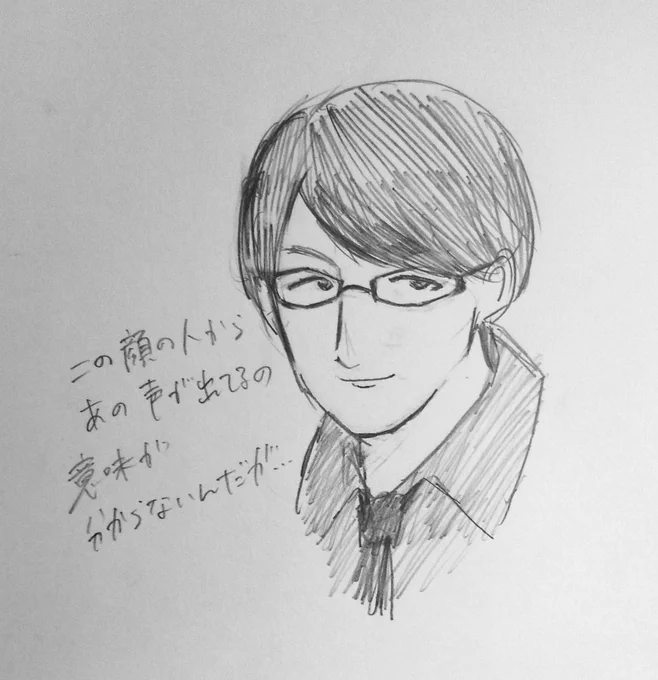 この顔の人から
あの声が出てるの
意味が
分からないんだが…